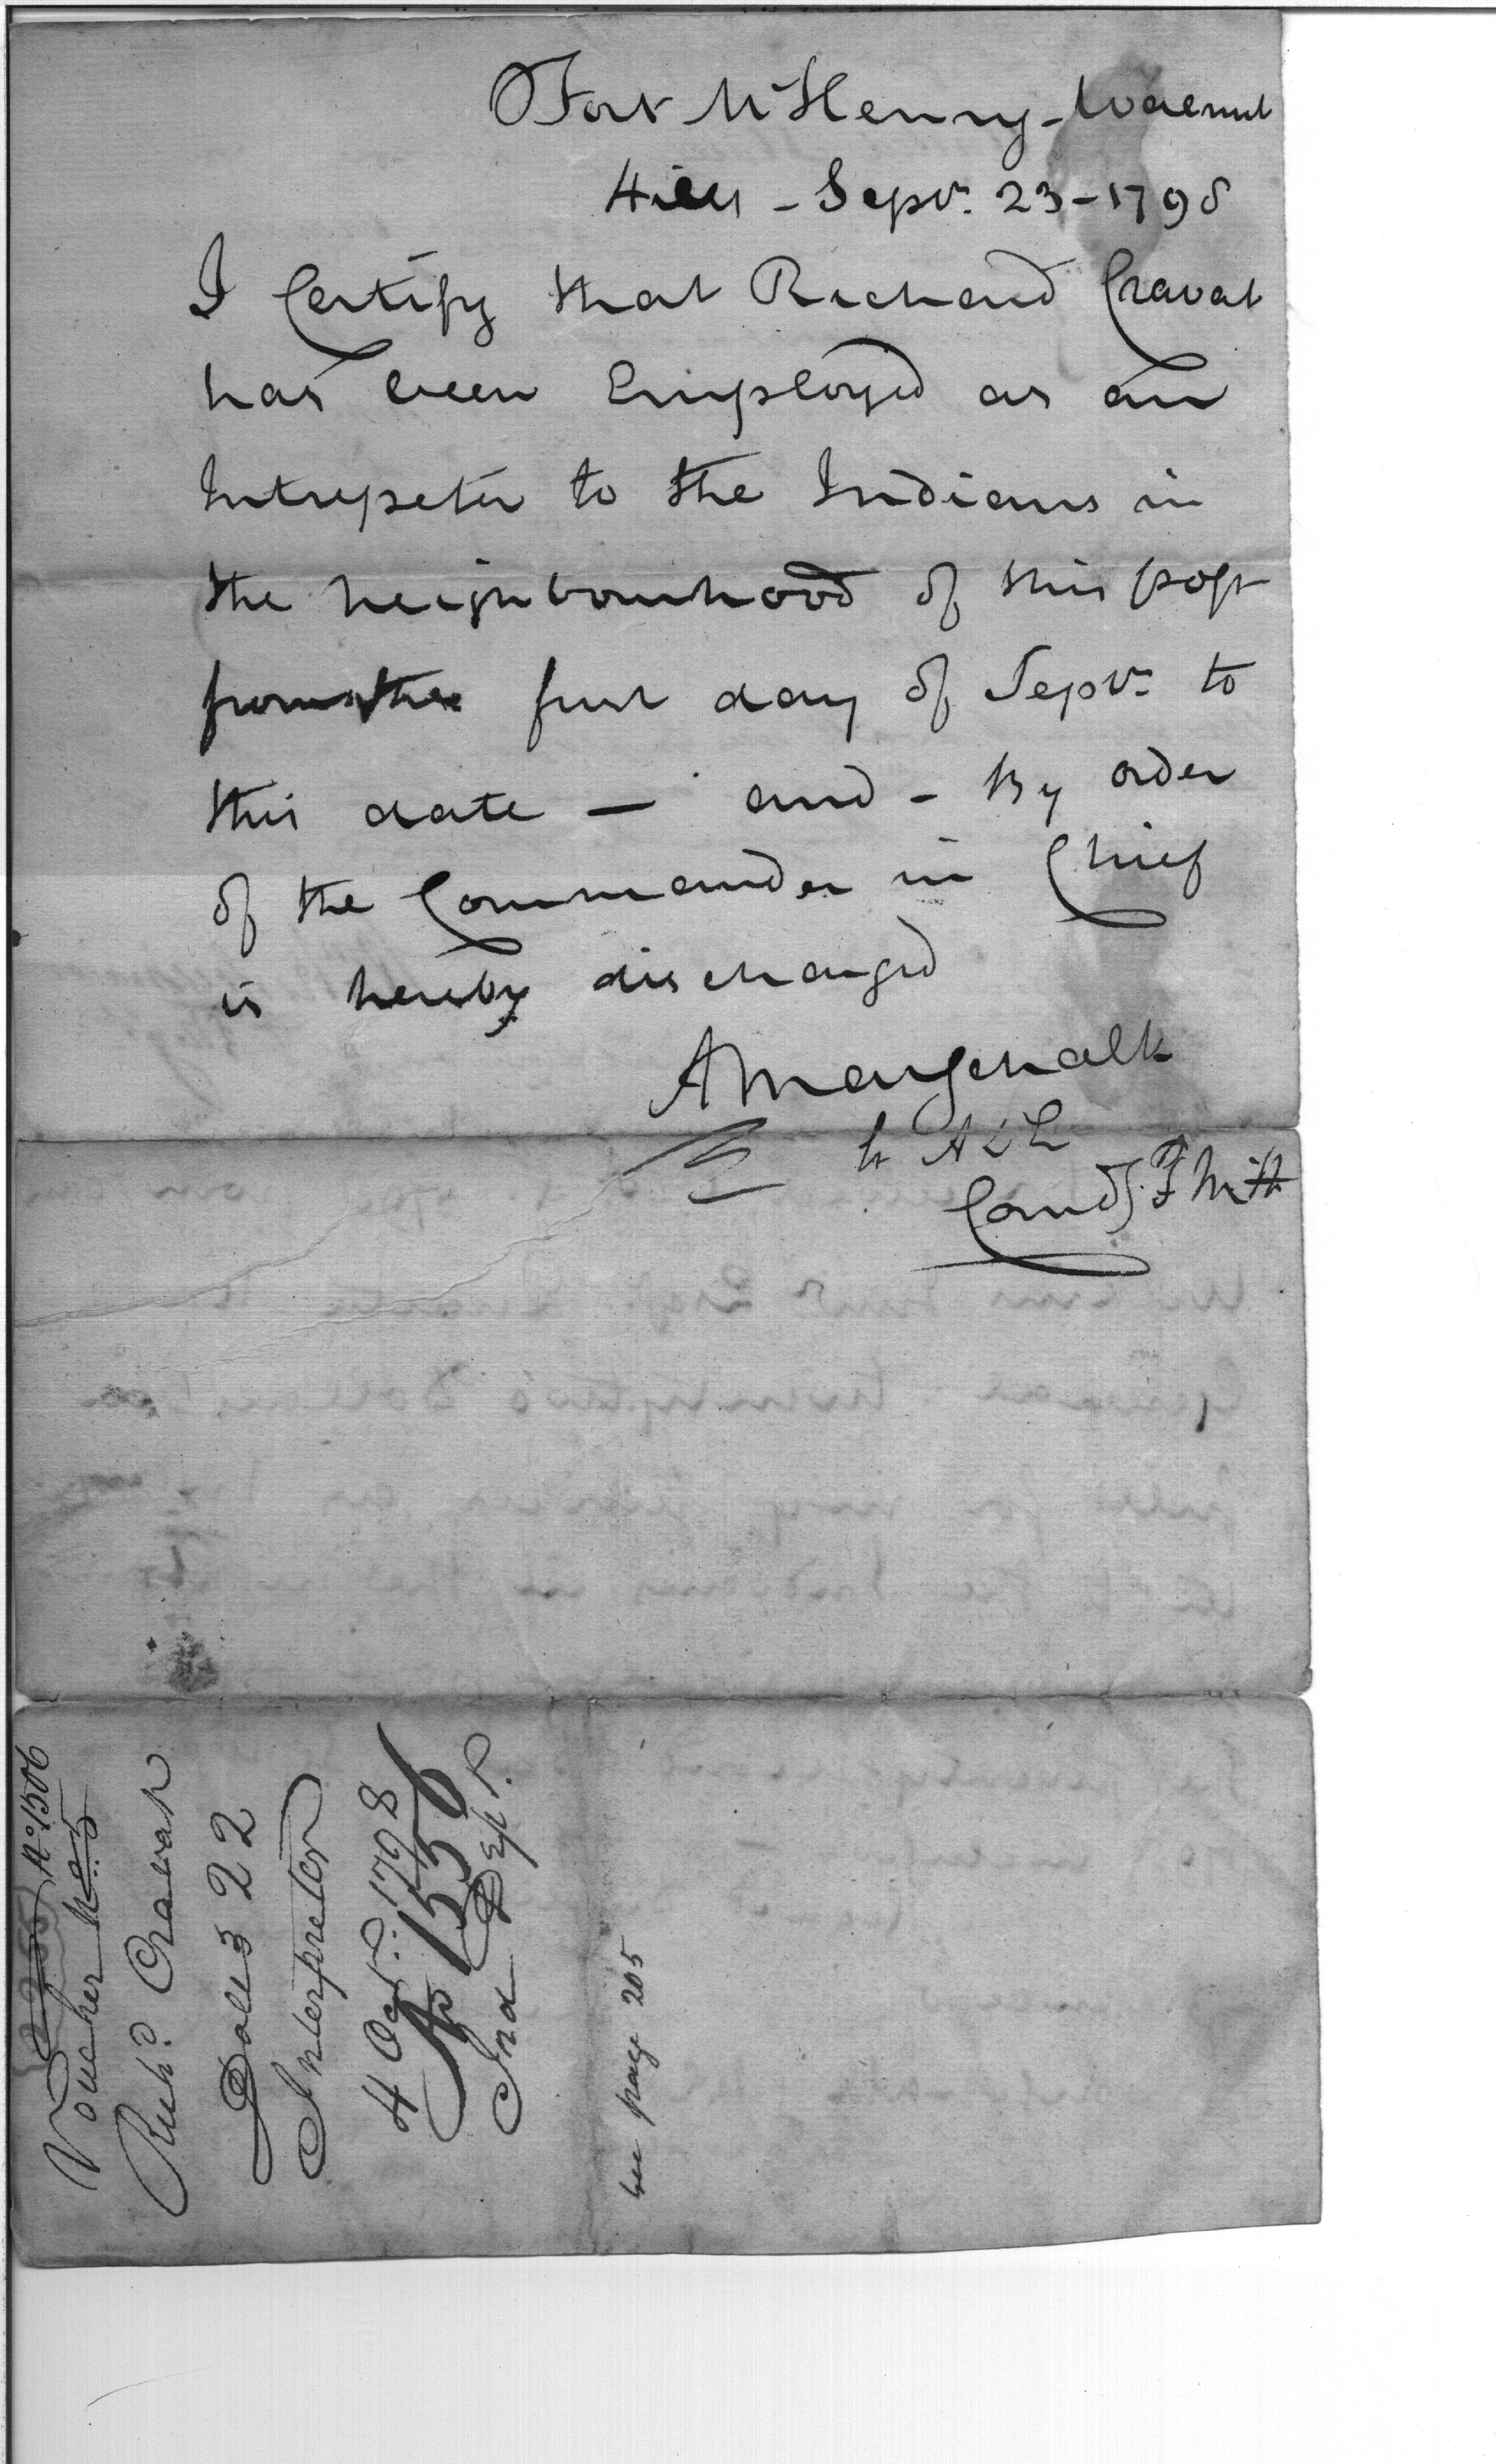 Fort McHenry - Walnut
Hills - Sepr. 23 - 1798
I Certify that Richard Cravat
has been Employed as an
Intrepeter to the Indians in
the neighbourhood of this post
from the first day of Sepr. to
this date — and - By order
of the Commander in Chief
is hereby discharged
A Marschalk
Lt A & E
Comdg F McH
Voucher No. 5 No. 1506
Richd. Cravat
Dolls 22
Interpreter
4 Oct. 1798
No 1556
Ind Dept.
see page 205